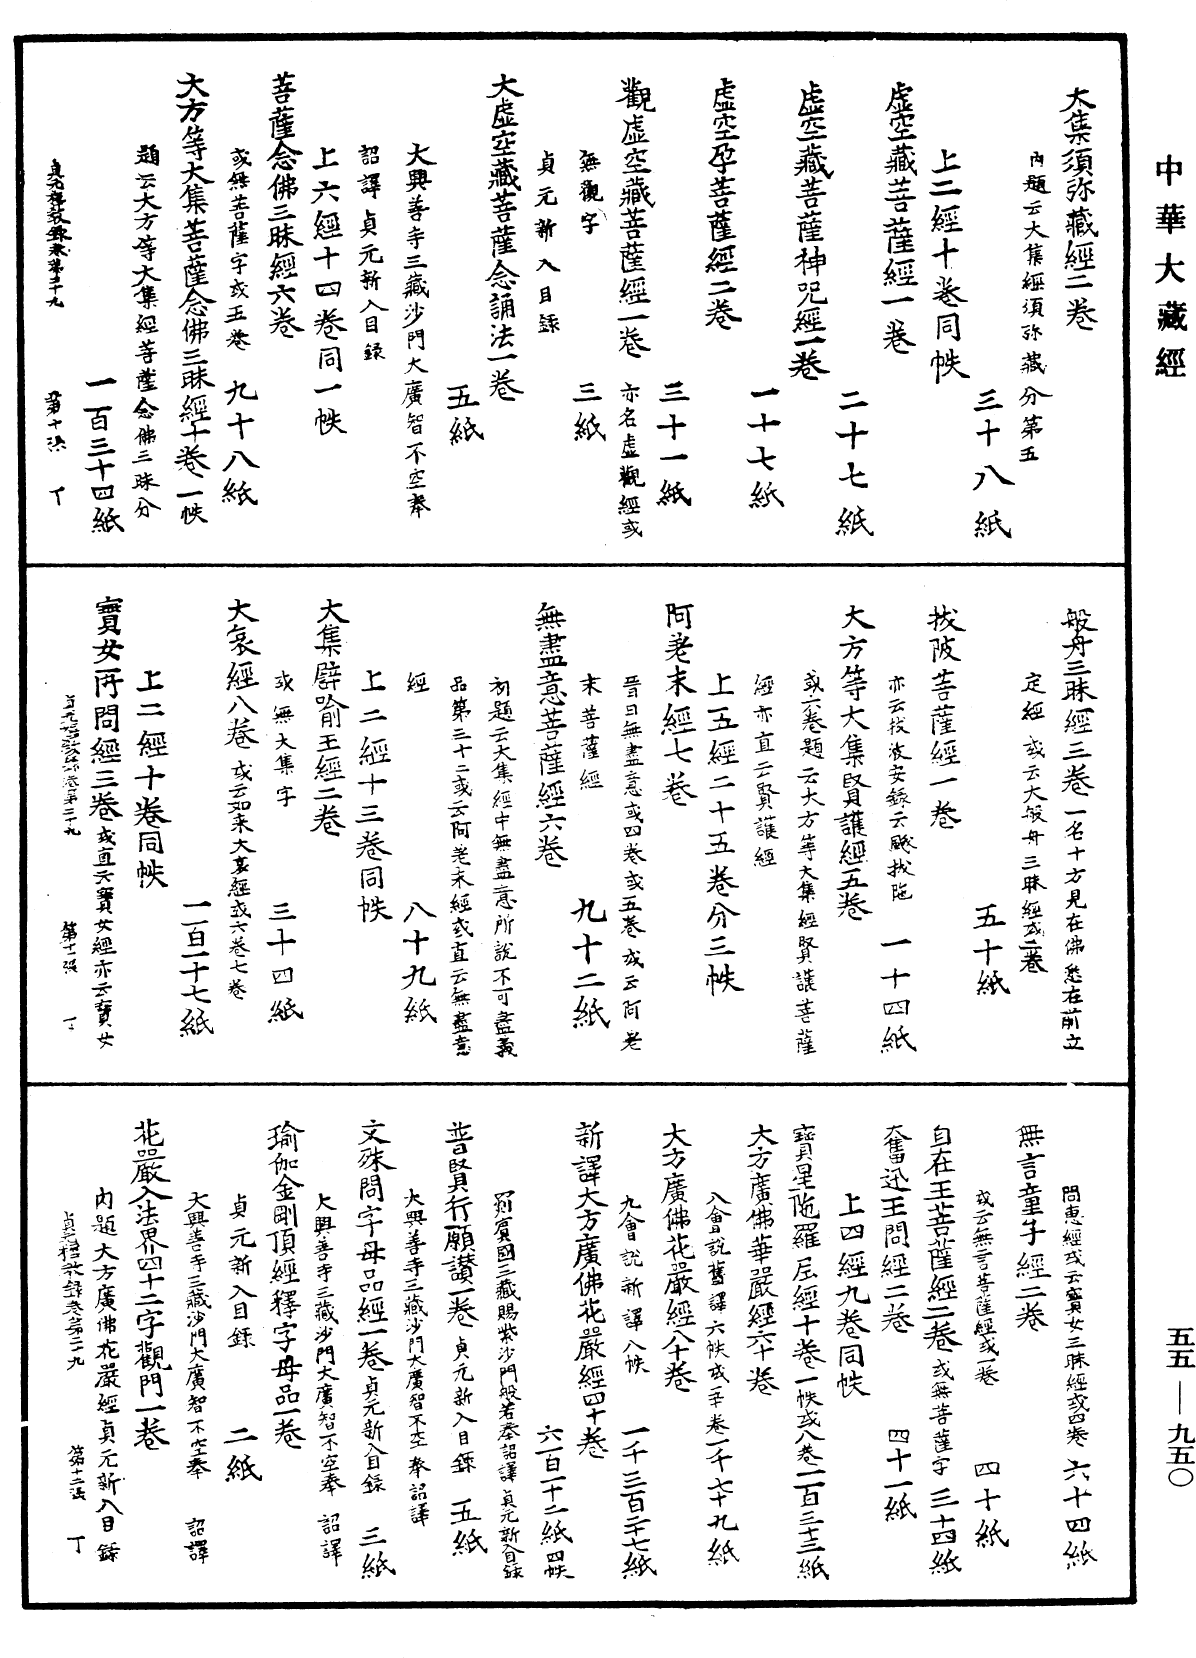 中華大藏經
大集須弥藏經二卷
內題云大集經須弥藏分第五
三十八紙
上二經十卷同帙
虛空藏菩薩經一卷
二十七紙
虛空藏菩薩神呪經一卷
一十七紙
虛空孕菩薩經二卷
三十一紙
觀虛空藏菩薩經一卷 亦名虛觀經或
無觀字
三紙
貞元新入目録
大虛空藏菩薩念誦法一卷
五紙
大興善寺三藏沙門大廣智不空奉
詔譯 貞元新入目録
上六經十四卷同一帙
菩薩念佛三昧經六卷
或無菩薩字或五卷 九十八紙
大方等大集菩薩念佛三昧經十卷一帙
題云大方等大集經菩薩念佛三昧分
一百三十四紙
貞元釋教録卷第二十九 第十張 丁
般舟三昧經三卷 一名十方見在佛悉在前立
定經或云大般舟三昧經或二卷
五十紙
拔陂菩薩經一卷
亦云拔波安録云颰拔陁 一十四紙
大方等大集賢護經五卷
或六卷題云大方等大集經賢護菩薩
經亦直云賢護經
上五經二十五卷分三帙
阿差末經七卷
晉曰無盡意或四卷或五卷或云阿差
末菩薩經 九十二紙
無盡意菩薩經六卷
初題云大集經中無盡意所說不可盡義
品第三十二或云阿差末經或直云無盡意
經 八十九紙
上二經十三卷同帙
大集譬喻王經二卷
或無大集字 三十四紙
大哀經八卷 或云如來大哀經或六卷七卷
一百一十七紙
上二經十卷同帙
寶女所問經三卷 或直云寶女經亦云寶女
貞元釋教録卷第二十九 第十一張 丁
問惠經或云寶女三昧經或四卷 六十四紙
無言童子經二卷
或云無言菩薩經或一卷 四十紙
自在王菩薩經二卷 或無菩薩字 三十四紙
奮迅王問經二卷 四十一紙
上四經九卷同帙
寶星陁羅尼經十卷一帙或八卷 一百三十三紙
大方廣佛華嚴經六十卷
八會說舊譯六帙或五十卷 一千七十九紙
大方廣佛花嚴經八十卷
九會說新譯八帙 一千三百二十七紙
新譯大方廣佛花嚴經四十卷
六百一十二紙 四帙
罽賓國三藏賜紫沙門般若奉詔譯 貞元新入目録
普賢行願讚一卷 貞元新入目録 五紙
大興善寺三藏沙門大廣智不空奉詔譯
文殊問字母品經一卷 貞元新入目録 三紙
大興善寺三藏沙門大廣智不空奉 詔譯
瑜伽金剛頂經釋字母品一卷
貞元新入目録 二紙
大興善寺三藏沙門大廣智不空奉 詔譯
花嚴入法界四十二字觀門一卷
內題大方廣佛花嚴經 貞元新入目録
貞元釋教録卷第二十九 第十二張 丁
五五—九五〇